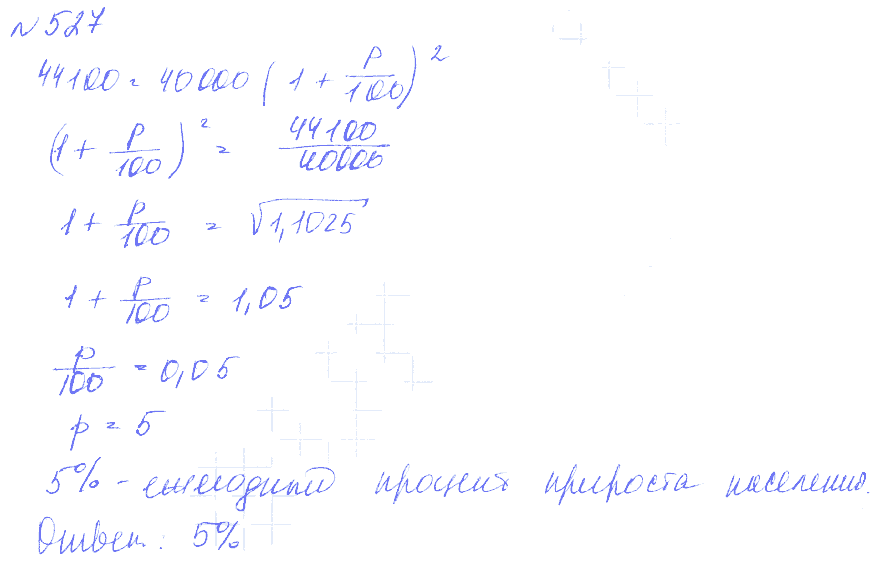 №527
44100 = 40000 (1 + p/100)²
(1 + p/100)² = 44100/40000
1 + p/100 = √1,1025
1 + p/100 = 1,05
p/100 = 0,05
p = 5
5% - ежегодный процент прироста населения.
Ответ: 5%